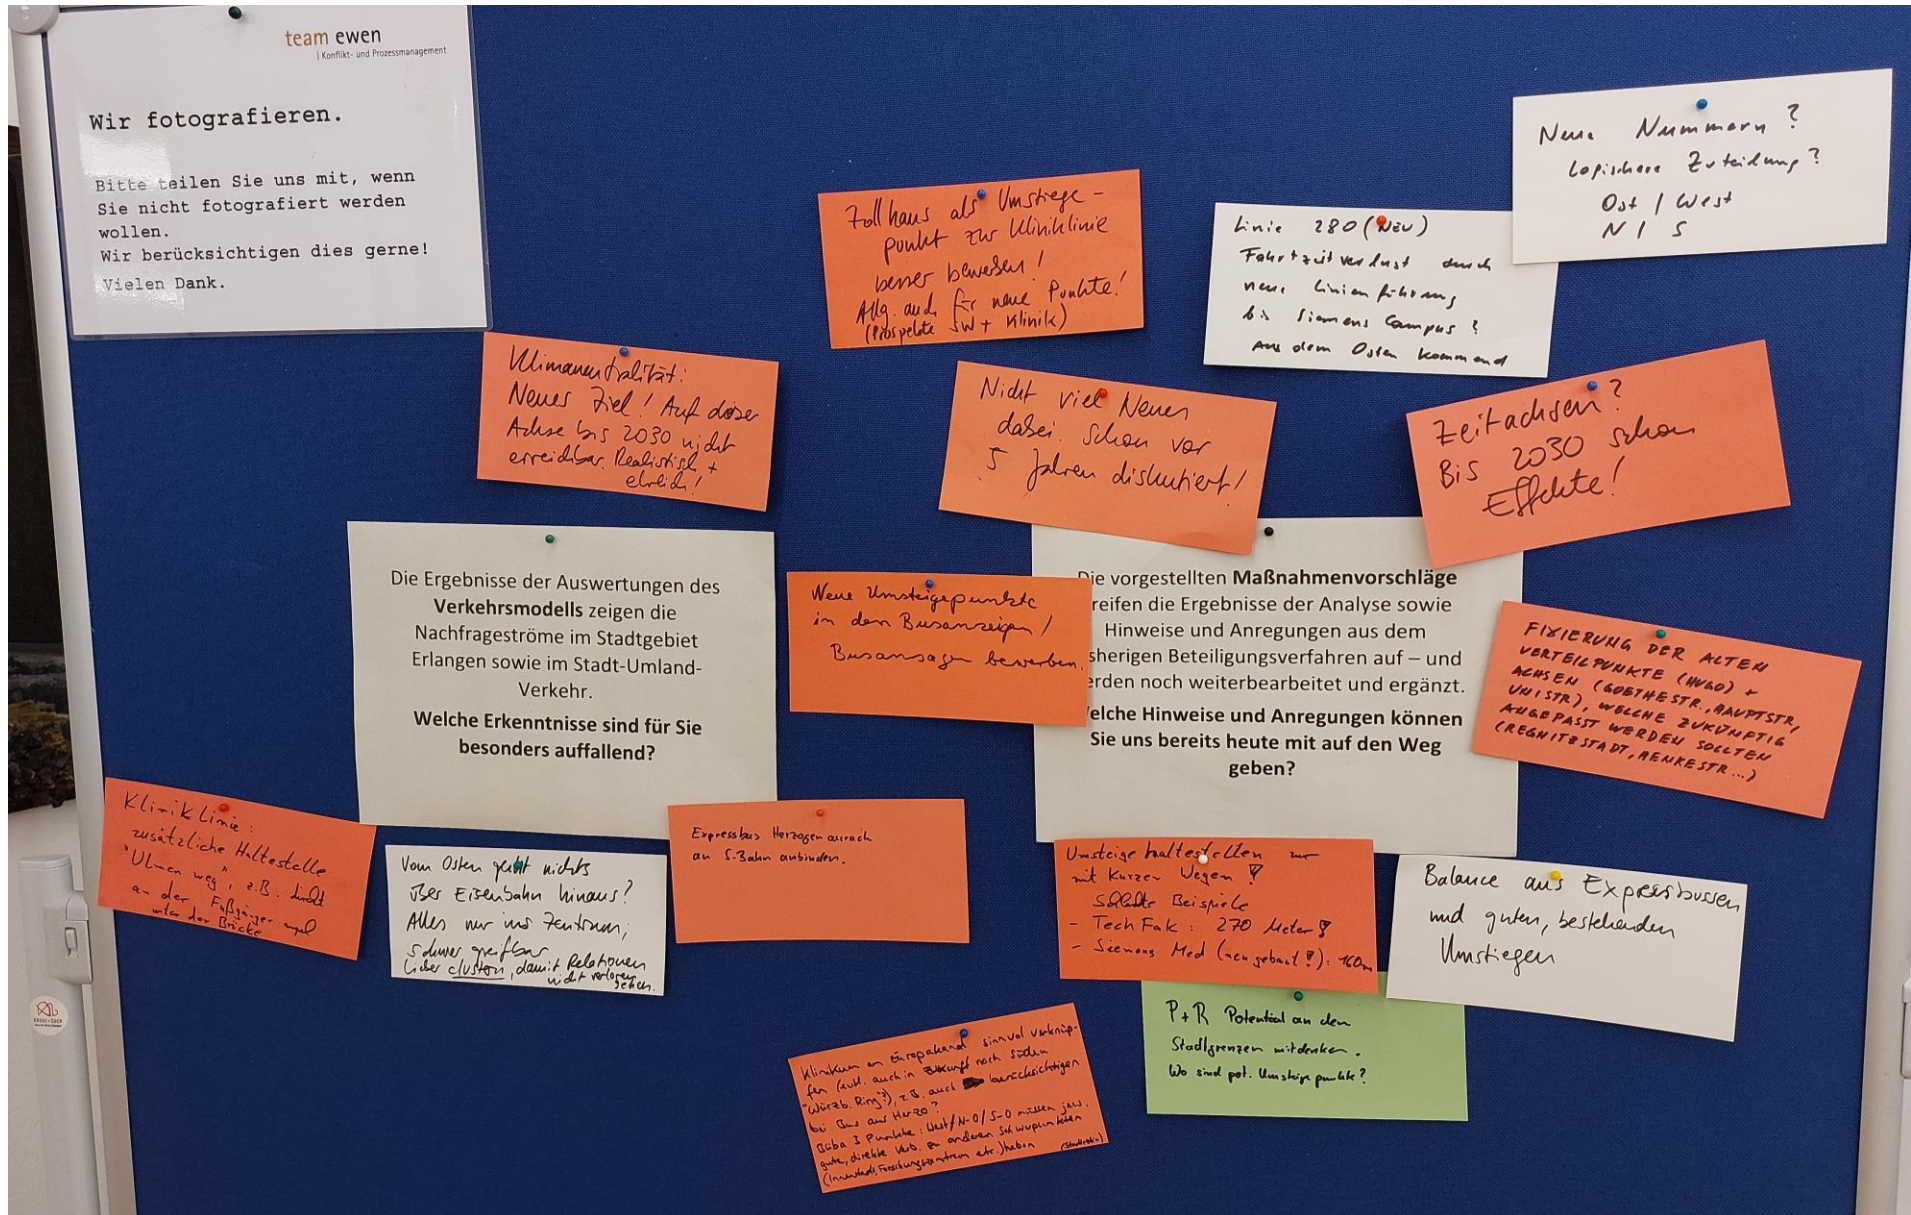 team ewen
| Konflikt- und Prozessmanagement
Wir fotografieren.
Bitte teilen Sie uns mit, wenn
Sie nicht fotografiert werden
wollen.
Wir berücksichtigen dies gerne!
Vielen Dank.
Neue Nummern?
Logischere Zuteilung?
Ost / West
N / S
Zollhaus als Umstiege-
punkt zur Kliniklinie
besser bewerben!
Allg. auch für neue Punkte!
(Prospekte SW + Klinik)
Linie 280 (NEU)
Fahrtzeitverlust durch
neue Linienführung
bis Siemens Campus?
Aus dem Osten kommend
Klimaneutralität:
Neues Ziel! Auf dieser
Achse bis 2030 nicht
erreichbar. Realistisch +
ehrlich!
Nicht viel Neues
dabei. Schon vor
5 Jahren diskutiert!
Zeitachsen?
Bis 2030 schon
Effekte!
Die Ergebnisse der Auswertungen des
Verkehrsmodells zeigen die
Nachfrageströme im Stadtgebiet
Erlangen sowie im Stadt-Umland-
Verkehr.
Welche Erkenntnisse sind für Sie
besonders auffallend?
Neue Umsteigepunkte
in den Busanzeigen /
Busansagen bewerben.
Die vorgestellten Maßnahmenvorschläge
reifen die Ergebnisse der Analyse sowie
Hinweise und Anregungen aus dem
sherigen Beteiligungsverfahren auf – und
erden noch weiterbearbeitet und ergänzt.
elche Hinweise und Anregungen können
Sie uns bereits heute mit auf den Weg
geben?
FIXIERUNG DER ALTEN
VERTEILPUNKTE (HUGO) +
ACHSEN (GOETHESTR., HAUPTSTR,
UNISTR), WELCHE ZUKÜNFTIG
ANGEPASST WERDEN SOLLTEN
(REGNITZSTADT, HENKESTR...)
Kliniklinie:
zusätzliche Haltestelle
"Ulmenweg", z.B. direkt
an der Fußgänger
unter der Brücke
Vom Osten geht nichts
über Eisenbahn hinaus?
Alles nur ins Zentrum;
schwer greifbar
Lieber clustern, damit Relationen
nicht verloren
gehen.
Expressbus Herzogenaurach
an S-Bahn anbinden.
Umsteigehaltestellen nur
mit kurzen Wegen!
Schlechte Beispiele
- TechFak: 270 Meter!
- Siemens Med (neu gebaut!): 160m
Balance aus Expressbussen
und guten, bestehenden
Umstiegen
P+R Potential an den
Stadtgrenzen mitdenken.
Wo sind pot. Umsteigepunkte?
Klinikum am Europakanal sinnvoll verknüp-
fen (evtl. auch in Zukunft nach Süden
"Würzb. Ring"?), z.B. auch berücksichtigen
bei Bus aus Herzo?
Büba 3 Punkte: West/N-O/S-O müssen jew.
gute, direkte Verb. zu anderen Schwerpunkten
(Innenstadt, Forschungszentrum etc.) haben